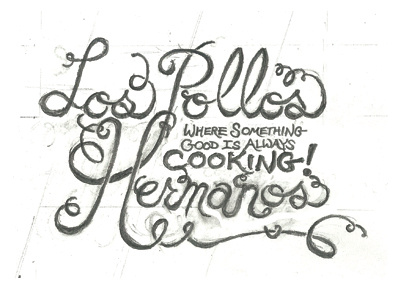 Los Pollos
WHERE SOMETHING
GOOD IS ALWAYS
COOKING!
Hermanos